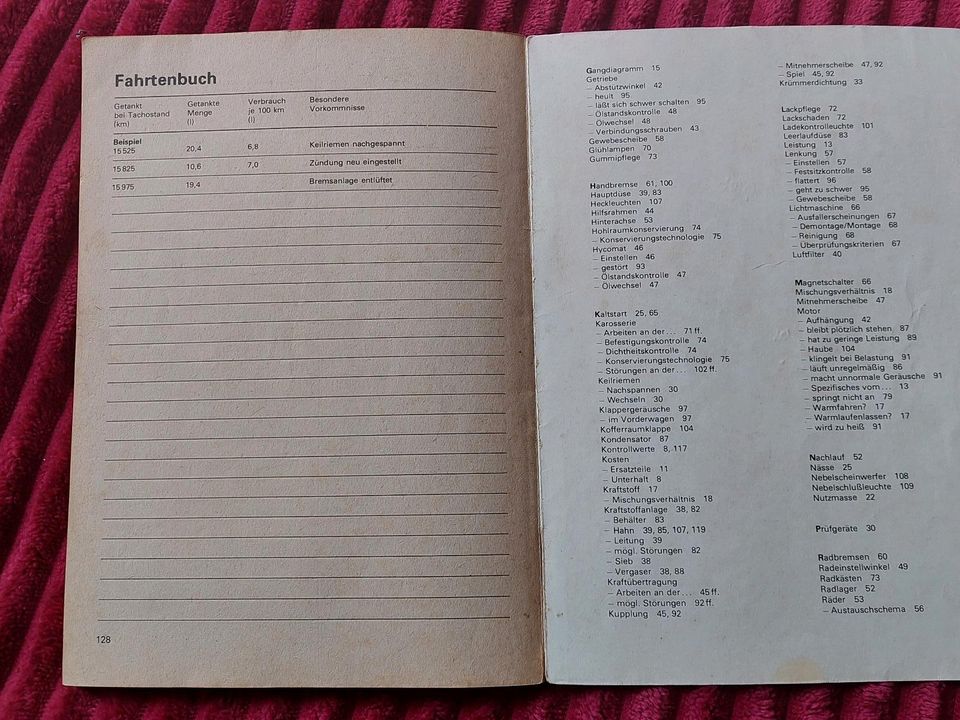 Fahrtenbuch
Getankt Getankte Verbrauch Besondere
bei Tachostand Menge je 100 km Vorkommnisse
(km) (l) (l)
Beispiel
15 525 20,4 6,8 Keilriemen nachgespannt
15 825 10,6 7,0 Zündung neu eingestellt
15 975 19,4 Bremsanlage entlüftet
128
Gangdiagramm 15
Getriebe
– Abstützwinkel 42
– heult 95
– läßt sich schwer schalten 95
– Ölstandskontrolle 48
– Ölwechsel 48
– Verbindungsschrauben 43
Gewebescheibe 58
Glühlampen 70
Gummipflege 73
Handbremse 61, 100
Hauptdüse 39, 83
Heckleuchten 107
Hilfsrahmen 44
Hinterachse 53
Hohlraumkonservierung 74
– Konservierungstechnologie 75
Hycomat 46
– Einstellen 46
– gestört 93
– Ölstandskontrolle 47
– Ölwechsel 47
Kaltstart 25, 65
Karosserie
– Arbeiten an der... 71 ff.
– Befestigungskontrolle 74
– Dichtheitskontrolle 74
– Konservierungstechnologie 75
– Störungen an der... 102 ff.
Keilriemen
– Nachspannen 30
– Wechseln 30
Klappergeräusche 97
– im Vorderwagen 97
Kofferraumklappe 104
Kondensator 87
Kontrollwerte 8, 117
Kosten
– Ersatzteile 11
– Unterhalt 8
Kraftstoff 17
– Mischungsverhältnis 18
Kraftstoffanlage 38, 82
– Behälter 83
– Hahn 39, 85, 107, 119
– Leitung 39
– mögl. Störungen 82
– Sieb 38
– Vergaser 38, 88
Kraftübertragung
– Arbeiten an der... 45 ff.
– mögl. Störungen 92 ff.
Kupplung 45, 92
– Mitnehmerscheibe 47, 92
– Spiel 45, 92
Krümmerdichtung 33
Lackpflege 72
Lackschaden 72
Ladekontrolleuchte 101
Leerlaufdüse 83
Leistung 13
Lenkung 57
– Einstellen 57
– Festsitzkontrolle 58
– flattert 96
– geht zu schwer 95
– Gewebescheibe 58
Lichtmaschine 66
– Ausfallerscheinungen 67
– Demontage/Montage 68
– Reinigung 68
– Überprüfungskriterien 67
Luftfilter 40
Magnetschalter 66
Mischungsverhältnis 18
Mitnehmerscheibe 47
Motor
– Aufhängung 42
– bleibt plötzlich stehen 87
– hat zu geringe Leistung 89
– Haube 104
– klingelt bei Belastung 91
– läuft unregelmäßig 86
– macht unnormale Geräusche 91
– Spezifisches vom... 13
– springt nicht an 79
– Warmfahren? 17
– Warmlaufenlassen? 17
– wird zu heiß 91
Nachlauf 52
Nässe 25
Nebelscheinwerfer 108
Nebelschlußleuchte 109
Nutzmasse 22
Prüfgeräte 30
Radbremsen 60
Radeinstellwinkel 49
Radkästen 73
Radlager 52
Räder 53
– Austauschschema 56